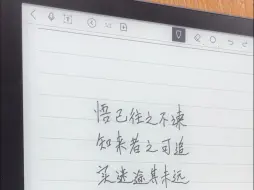 悟已往之不谏
知来者之可追
实迷途其未远